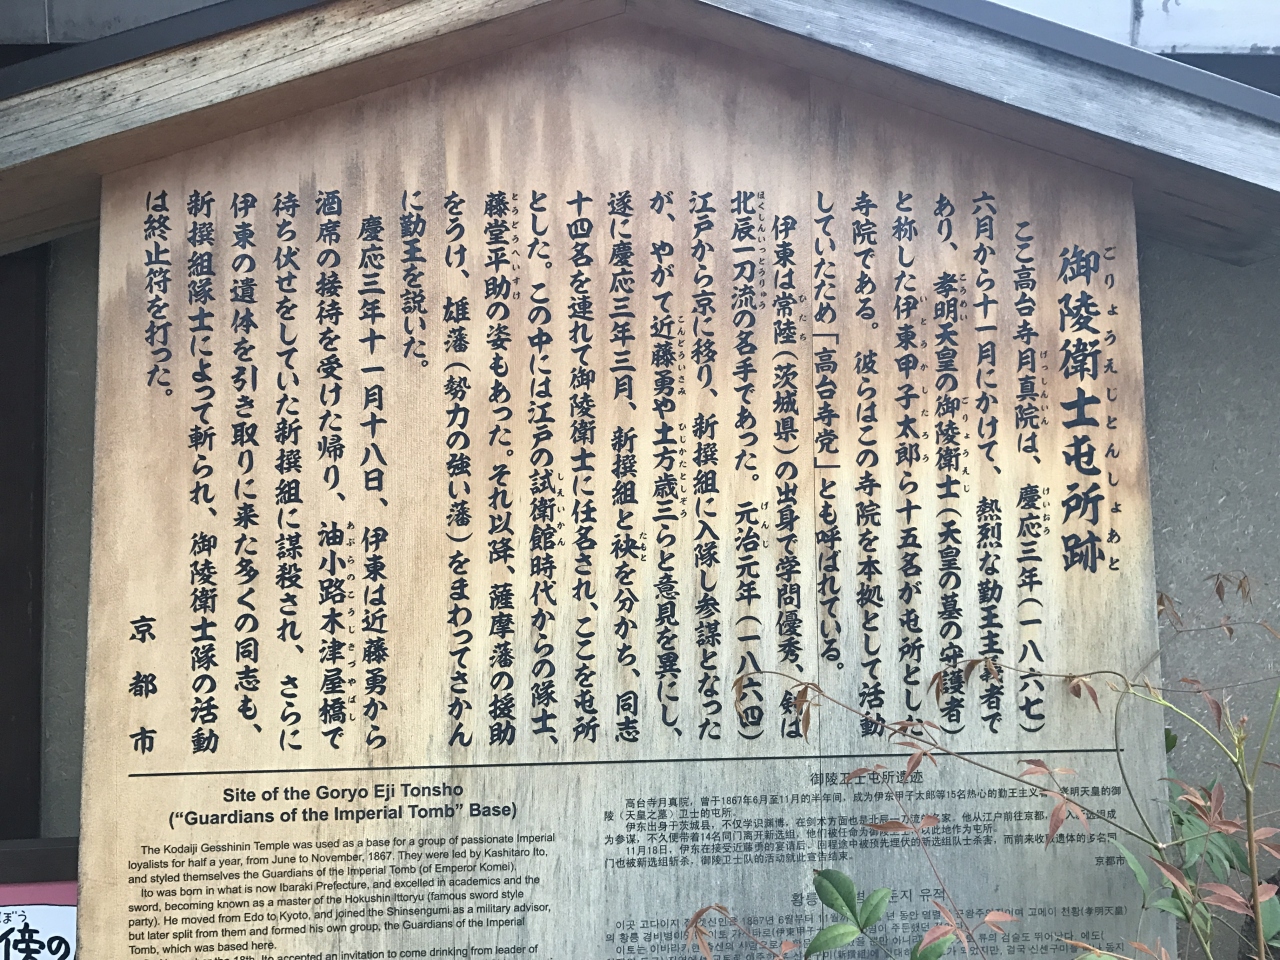 御陵衛士屯所跡
ごりょうえじとんしょあと
ここ高台寺月真院は、慶応三年(一八六七)
六月から十一月にかけて、熱烈な勤王主義者で
あり、孝明天皇の御陵衛士(天皇の墓の守護者)
と称した伊東甲子太郎ら十五名が屯所とした
寺院である。彼らはこの寺院を本拠として活動
していたため「高台寺党」とも呼ばれている。
伊東は常陸(茨城県)の出身で学問優秀、剣は
北辰一刀流の名手であった。元治元年(一八六四)
江戸から京に移り、新撰組に入隊し参謀となった
が、やがて近藤勇や土方歳三らと意見を異にし、
遂に慶応三年三月、新撰組と袂を分かち、同志
十四名を連れて御陵衛士に任名され、ここを屯所
とした。この中には江戸の試衛館時代からの隊士、
藤堂平助の姿もあった。それ以降、薩摩藩の援助
をうけ、雄藩(勢力の強い藩)をまわってさかん
に勤王を説いた。
慶応三年十一月十八日、伊東は近藤勇から
酒席の接待を受けた帰り、油小路木津屋橋で
待ち伏せをしていた新撰組に謀殺され、さらに
伊東の遺体を引き取りに来た多くの同志も、
新撰組隊士によって斬られ、御陵衛士隊の活動
は終止符を打った。
京都市
Site of the Goryo Eji Tonsho
("Guardians of the Imperial Tomb" Base)
The Kodaiji Gesshinin Temple was used as a base for a group of passionate Imperial
loyalists for half a year, from June to November, 1867. They were led by Kashitaro Ito,
and styled themselves the Guardians of the Imperial Tomb (of Emperor Komei).
Ito was born in what is now Ibaraki Prefecture, and excelled in academics and the
sword, becoming known as a master of the Hokushin Ittoryu (famous sword style
party). He moved from Edo to Kyoto, and joined the Shinsengumi as a military advisor,
but later split from them and formed his own group, the Guardians of the Imperial
Tomb, which was based here.
the 18th, Ito accepted an invitation to come drinking from leader of
御陵卫士屯所遗迹
高台寺月真院，曾于1867年6月至11月的半年间，成为伊东甲子太郎等15名热心的勤王主义 孝明天皇的御
陵（天皇之墓）卫士的屯所。
伊东出身于茨城县，不仅学识渊博，在剑术方面也是北辰一刀流的名家。他从江户前往京都，入 组成
为参谋，不久便带着14名同门离开新选组，他们被任命为御陵卫士 以此地作为屯所。
11月18日，伊东在接受近藤勇的宴请后，回程途中被预先埋伏的新选组队士杀害，而前来收 遗体的多名同
门也被新选组斩杀，御陵卫士队的活动就此宣告结束。
京都市
황릉 둔지 유적
傍の
ぼう